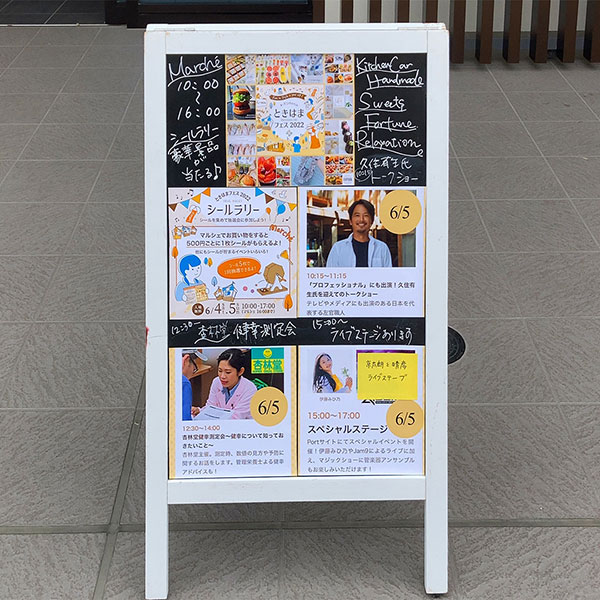 Marché
10:00
~
16:00
シールラリー
豪華景品
当たる♪
ときはま
フェス2022
Kitchen Car
Handmade
Sweets
Fortune
Relaxation
久住有生氏
トークショー
ときはまフェス2022
シールラリー
シールを集めて抽選会に参加しよう!
マルシェでお買い物をすると
500円ごとに1枚シールがもらえるよ!
他にもシールが貯まるイベントいろいろ!
Marché
シール5枚で
1回抽選できるよ!
6/4 5 10:00-17:00
6/5
10:15~11:15
「プロフェッショナル」にも出演!久住有
生氏を迎えてのトークショー
テレビやメディアにも出演のある日本を代
表する左官職人
12:30~ 杏林堂 健幸測定会
15:00~
ライブステージあります
杏林堂
6/5
12:30~14:00
杏林堂健幸測定会~健幸について知ってお
きたいこと~
杏林堂主催。測定時、数値の見方や予防に
関するお話をします。管理栄養士による健幸
アドバイスも!
伊藤みひ乃
ライブステージ
6/5
15:00~17:00
スペシャルステージ
Portサイトにてスペシャルイベントを開
催!伊藤みひ乃やJam9によるライブに加
え、マジックショーに管楽器アンサンブル
もお楽しみいただけます!